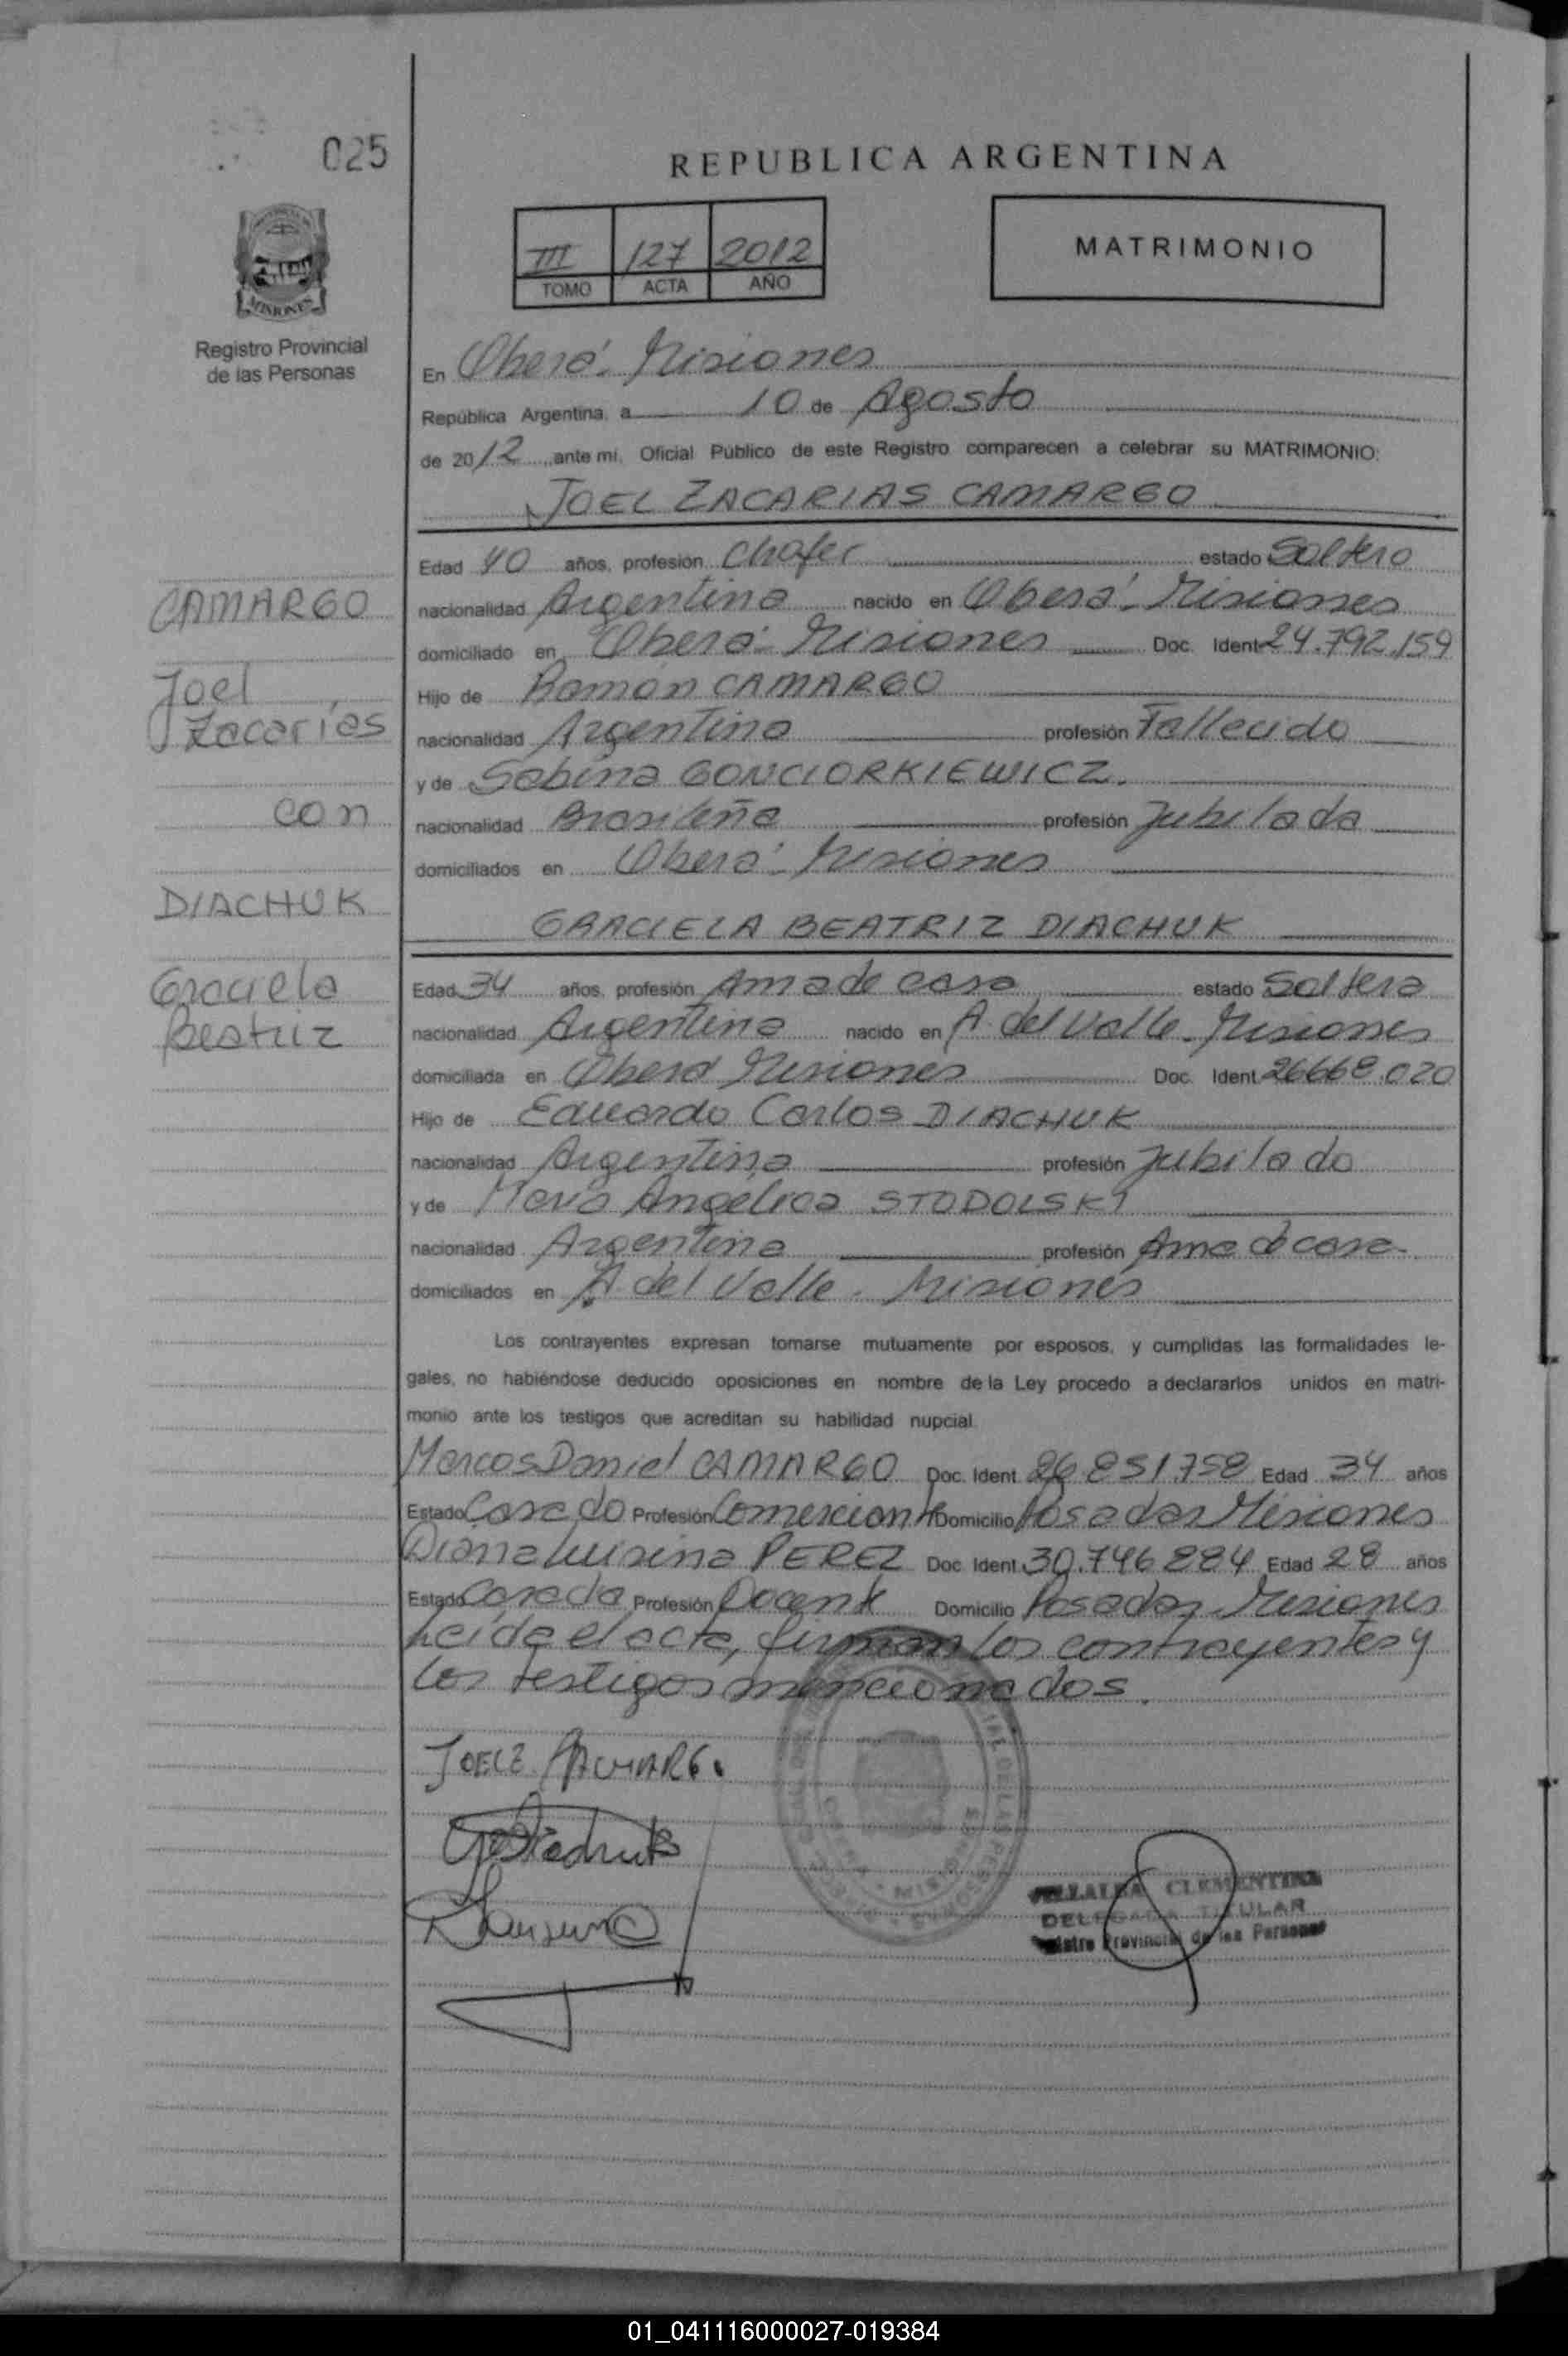 025
REPUBLICA ARGENTINA
III 127 2012
TOMO ACTA AÑO
MATRIMONIO
MISIONES
Registro Provincial
de las Personas
En Oberá - Misiones
República Argentina, a 10 de Agosto
de 2012, ante mí, Oficial Público de este Registro comparecen a celebrar su MATRIMONIO:
JOEL ZACARIAS CAMARGO
Edad 40 años, profesión Chofer estado Soltero
nacionalidad Argentina nacido en Oberá - Misiones
domiciliado en Oberá - Misiones Doc. Ident 24.792.159
Hijo de Ramón CAMARGO
nacionalidad Argentina profesión Fallecido
y de Sabina GONCIORKIEWICZ.
nacionalidad Brasileña profesión Jubilada
domiciliados en Oberá - Misiones
GRACIELA BEATRIZ DIACHUK
Edad 34 años, profesión Ama de casa estado Soltera
nacionalidad Argentina nacido en A. del Valle - Misiones
domiciliada en Oberá Misiones Doc. Ident 26668.020
Hijo de Eduardo Carlos DIACHUK
nacionalidad Argentina profesión Jubilado
y de María Angélica STODOLSKI
nacionalidad Argentina profesión Ama de casa
domiciliados en A. del Valle - Misiones
CAMARGO
Joel
Zacarías
con
DIACHUK
Graciela
Beatriz
Los contrayentes expresan tomarse mutuamente por esposos, y cumplidas las formalidades le-
gales, no habiéndose deducido oposiciones en nombre de la Ley procedo a declararlos unidos en matri-
monio ante los testigos que acreditan su habilidad nupcial.
Marcos Daniel CAMARGO Doc. Ident. 26.851.758 Edad 34 años
Estado Casado Profesión Comerciante Domicilio Posadas Misiones
Diana Luisina PEREZ Doc. Ident. 30.746884 Edad 28 años
Estado Casada Profesión Docente Domicilio Posadas Misiones
Leida el acta, firman los contrayentes y
los testigos mencionados.
JOEL Z CAMARGO
VILLALBA CLEMENTINA
DELEGADA TITULAR
Registro Provincial de las Personas
01_041116000027-019384